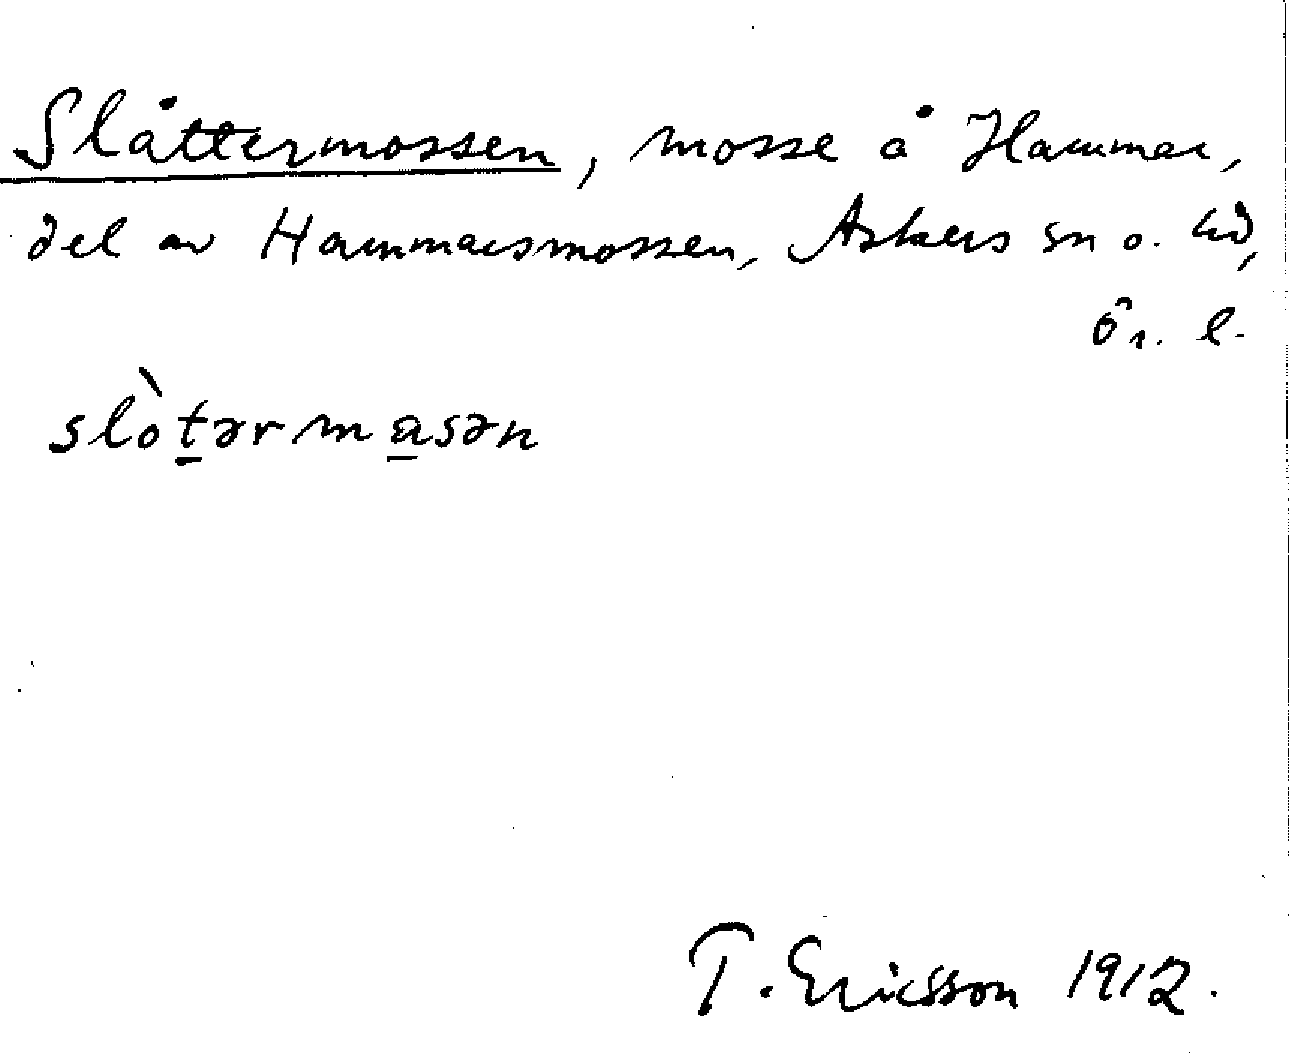 Slåttermossen, mosse å Hammar,
del av Hammarsmossen, Askers sn o. hd,
Ör. l.
slòtərmasən
T. Ericsson 1912.